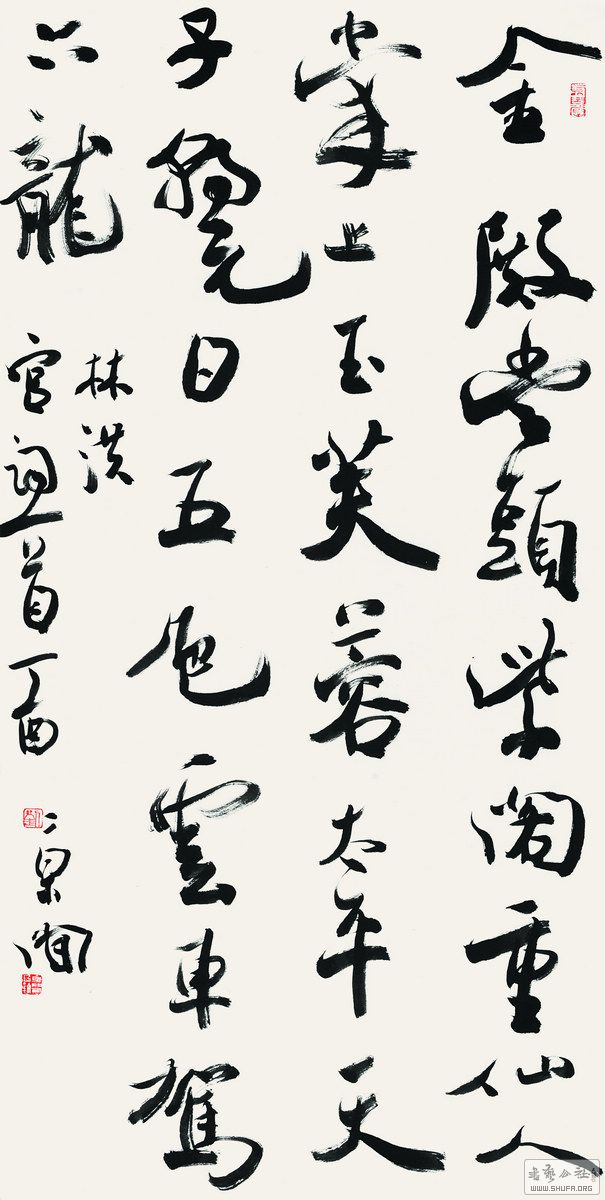 金殿當頭紫閣重仙人
掌上玉芙蓉太平天
子朝元日五色雲車駕
六龍
林洪
宫詞一首丁酉
書藝公社
WWW.SHUFA.ORG